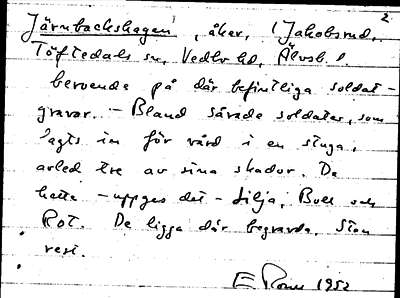 2
Järnbackshagen, åker, (Jakobsrud,
Töftedals sn, Vedbo hd, Älvsb. l.
beroende på där befintliga soldat-
gravar. - Bland sårade soldater, som
lagts in för vård i en stuga,
avled tre av sina skador. De
hette - uppges det - Lilja, Boll och
Rot. De ligga där begravda. Sten
rest.
E 1952